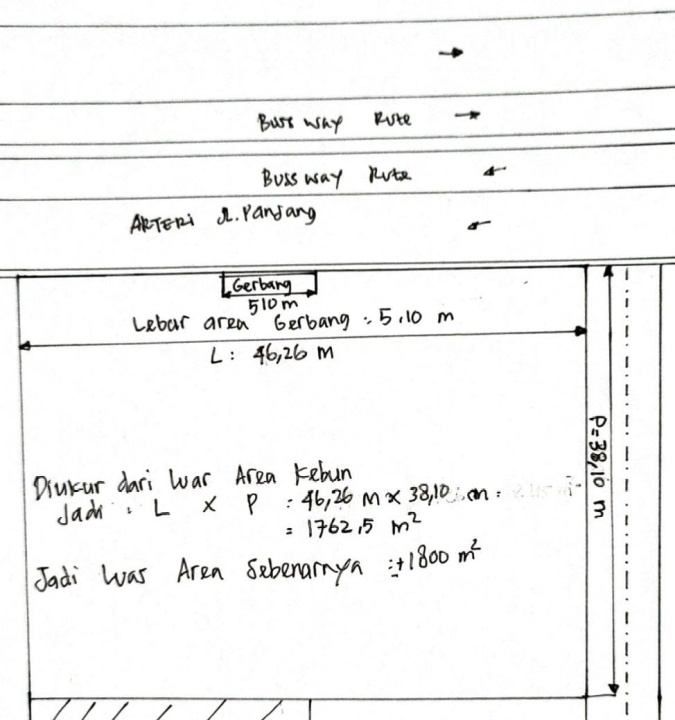 Buss way Rute
Buss way Rute
ARTERI Jl. Panjang
Gerbang
510 m
Lebar area Gerbang : 5.10 m
L : 46,26 m
P = 38,10 m
Diukur dari luar Area Kebun
Jadi : L X P : 46,26 m x 38,10 m =
= 1762,5 m²
Jadi luas Area Sebenarnya : ± 1800 m²